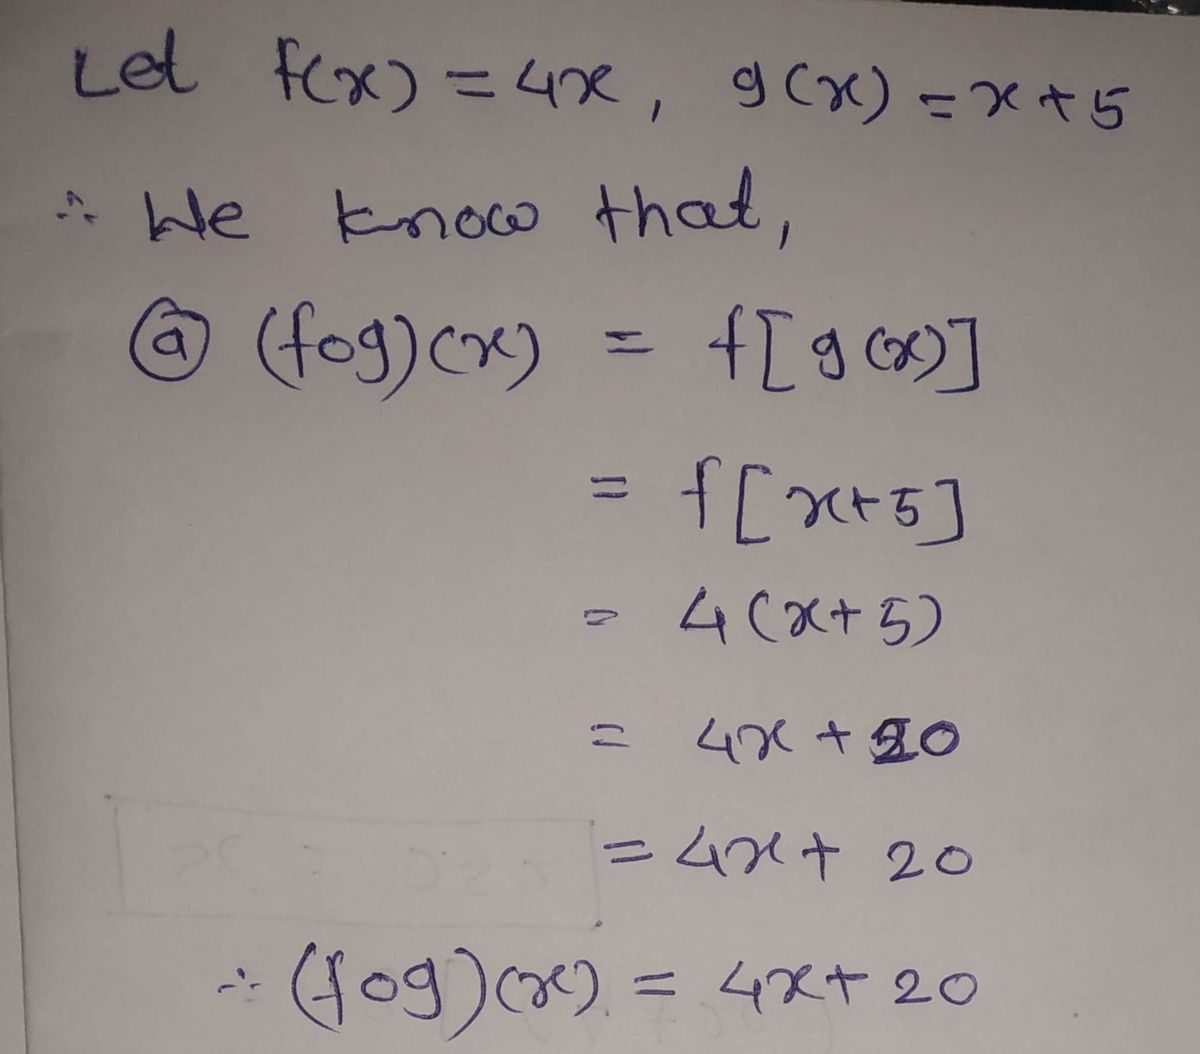 Let f(x) = 4x, g(x) = x + 5
∴ We know that,
ⓐ (fog)(x) = f[g(x)]
= f[x+5]
= 4(x+5)
= 4x + 20
= 4x + 20
∴ (fog)(x) = 4x + 20